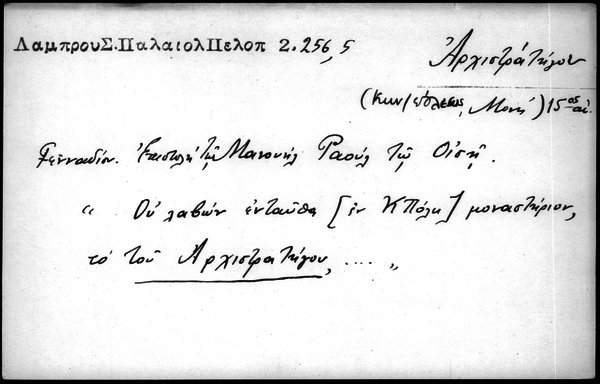 ΛαμπρουΣ.ΠαλαιολΠελοπ 2.256,5
Ἀρχιστράτηγον
(Κων/πόλεως, Μονή) 15ος αἰ.
Γενναδίου. Ἐπιστολὴ τῷ Μανουὴλ Ραοὺλ τῷ Οἰσῇ.
“ Οὐ λαβὼν ἐνταῦθα [ἐν ΚΠόλει] μοναστήριον,
τὸ τοῦ Ἀρχιστρατήγου, .... „